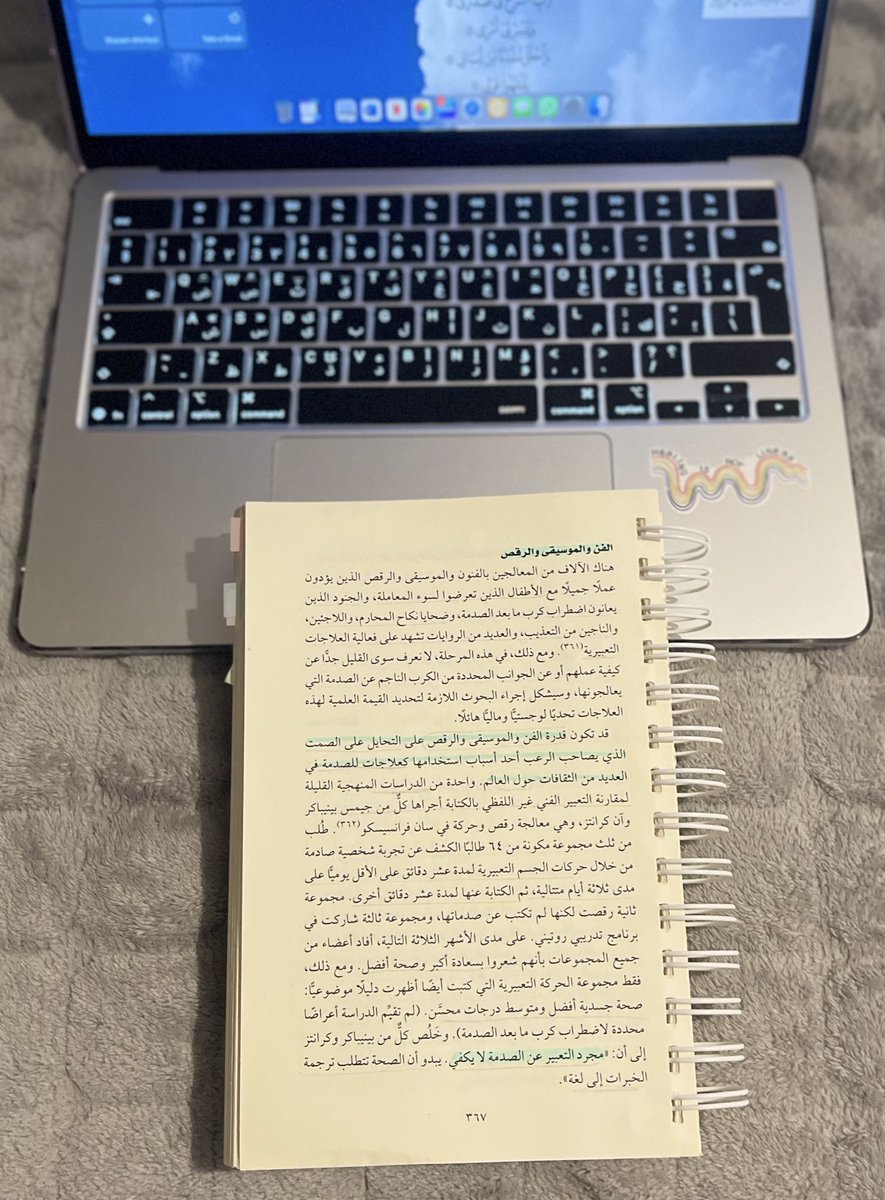 رب اشرح لي صدري
ويسر لي أمري
واحلل عقدة من لساني
يفقهوا قولي
Q ض
W ص
E ث
R ق
T ف
Y غ
U ع
I ه
O خ
P ح
A ش
S س
D ي
F ب
G ل
H ا
J ت
K ن
L م
Z
X
C
V
B
N
M
fn
control
option
command
command
option
HEALING IS NOT LINEAR
الفن والموسيقى والرقص
هناك الآلاف من المعالجين بالفنون والموسيقى والرقص الذين يؤدون
عملًا جميلًا مع الأطفال الذين تعرضوا لسوء المعاملة، والجنود الذين
يعانون اضطراب كرب ما بعد الصدمة، وضحايا نكاح المحارم، واللاجئين،
والناجين من التعذيب، والعديد من الروايات تشهد على فعالية العلاجات
التعبيرية(٣٦١). ومع ذلك، في هذه المرحلة، لا نعرف سوى القليل جدًّا عن
كيفية عملهم أو عن الجوانب المحددة من الكرب الناجم عن الصدمة التي
يعالجونها، وسيشكل إجراء البحوث اللازمة لتحديد القيمة العلمية لهذه
العلاجات تحديًا لوجستيًّا وماليًّا هائلًا.
قد تكون قدرة الفن والموسيقى والرقص على التحايل على الصمت
الذي يصاحب الرعب أحد أسباب استخدامها كعلاجات للصدمة في
العديد من الثقافات حول العالم. واحدة من الدراسات المنهجية القليلة
لمقارنة التعبير الفني غير اللفظي بالكتابة أجراها كلٌّ من جيمس بينيباكر
وآن كرانتز، وهي معالجة رقص وحركة في سان فرانسيسكو(٣٦٢). طُلب
من ثلث مجموعة مكونة من ٦٤ طالبًا الكشف عن تجربة شخصية صادمة
من خلال حركات الجسم التعبيرية لمدة عشر دقائق على الأقل يوميًّا على
مدى ثلاثة أيام متتالية، ثم الكتابة عنها لمدة عشر دقائق أخرى. مجموعة
ثانية رقصت لكنها لم تكتب عن صدماتها، ومجموعة ثالثة شاركت في
برنامج تدريبي روتيني. على مدى الأشهر الثلاثة التالية، أفاد أعضاء من
جميع المجموعات بأنهم شعروا بسعادة أكبر وصحة أفضل. ومع ذلك،
فقط مجموعة الحركة التعبيرية التي كتبت أيضًا أظهرت دليلًا موضوعيًّا:
صحة جسدية أفضل ومتوسط درجات محسَّن. (لم تقيِّم الدراسة أعراضًا
محددة لاضطراب كرب ما بعد الصدمة). وخَلُص كلٌّ من بينيباكر وكرانتز
إلى أن: «مجرد التعبير عن الصدمة لا يكفي. يبدو أن الصحة تتطلب ترجمة
الخبرات إلى لغة».
٣٦٧